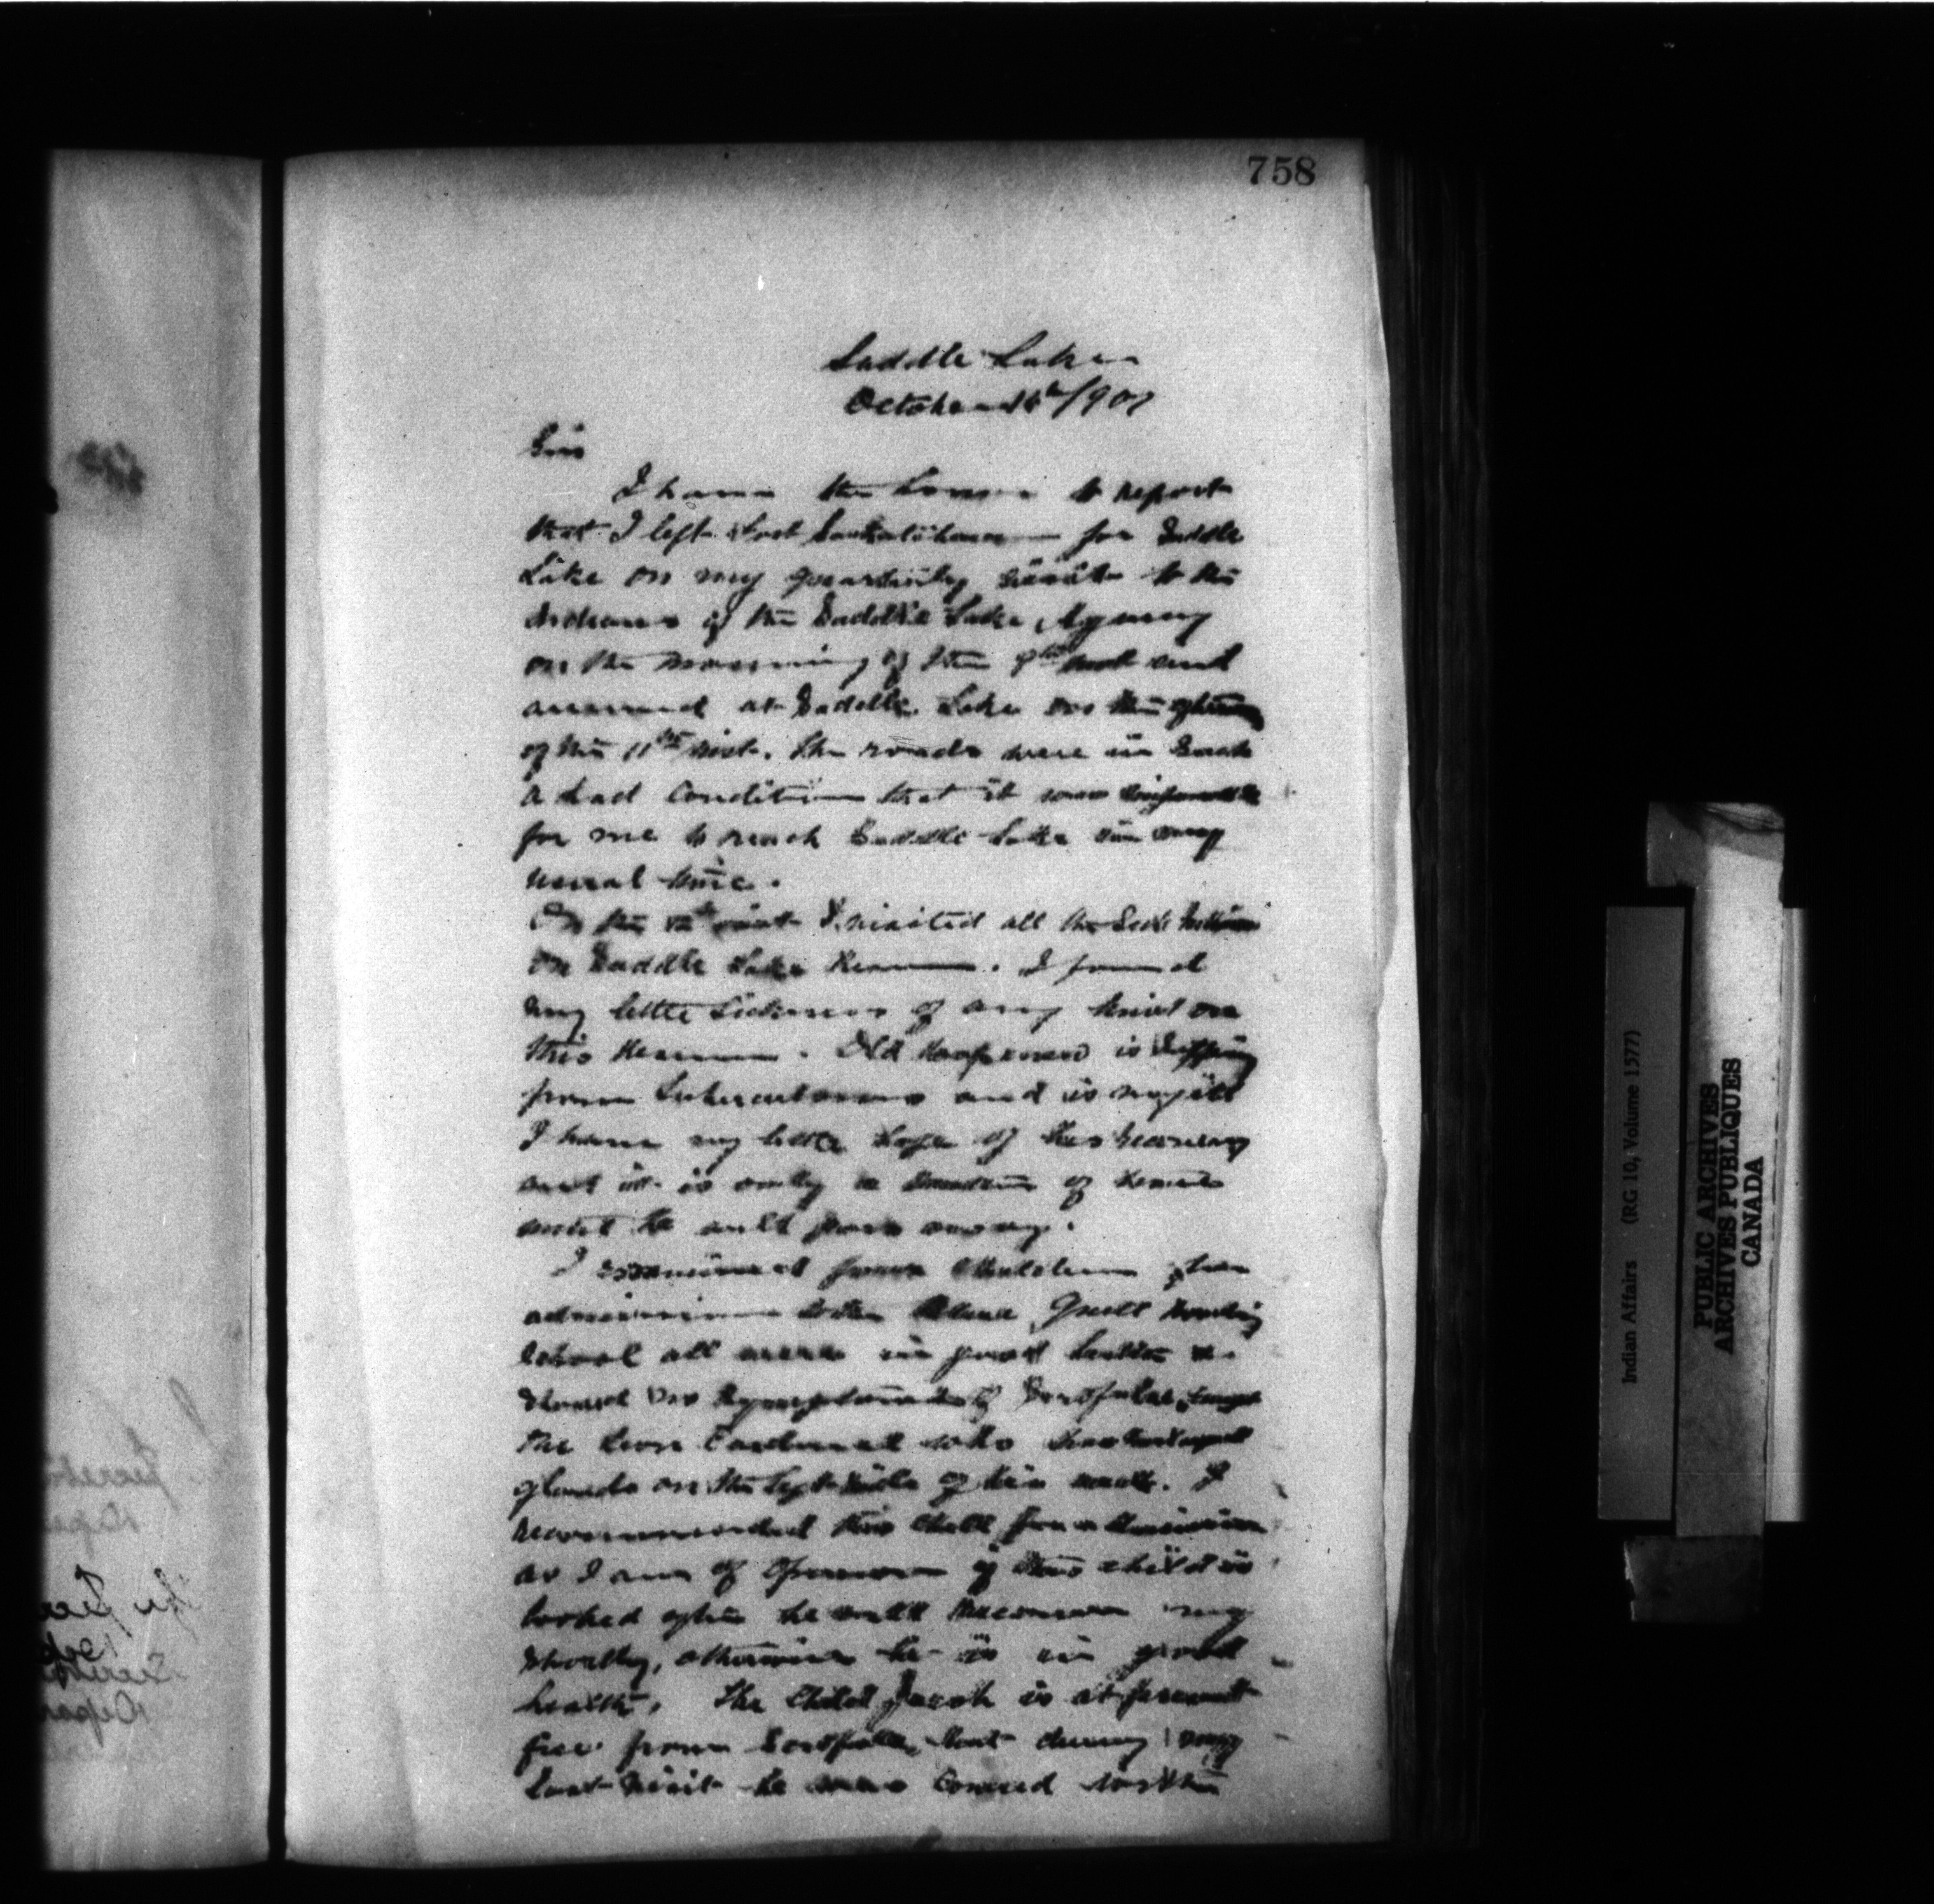 758
Saddle Lake
October 16th/907
Sir
I have the honor to report
that I left Fort Saskatchewan for Saddle
Lake on my quarterly visit to the
Indians of the Saddle Lake Agency
on the morning of the 9th inst and
arrived at Saddle Lake on the
of the 11th inst. The roads were in such
a bad condition that it was impossible
for me to reach Saddle Lake in my
usual time.
On the 12th inst I visited all the Sick Indians
on Saddle Lake Reserve. I found
very little Sickness of any kind on
this Reserve. Old is suffering
from Tuberculosis and is very ill
I have very little hope of his recovery
and it is only a question of time
until he will pass away.
I examined four Children for
admission to the Blue Quill Boarding
School all were in good health &
showed no symptoms of Scrofula, except
one Leon Cardinal who has enlarged
glands on the left side of his neck. I
recommended this child for admission
as I am of opinion if this child is
looked after he will recover very
shortly, otherwise he is in good
health. The Child Jacob is at present
free from Scrofula, but during my
last visit he was covered with
Indian Affairs (RG 10, Volume 1577)
PUBLIC ARCHIVES
ARCHIVES PUBLIQUES
CANADA